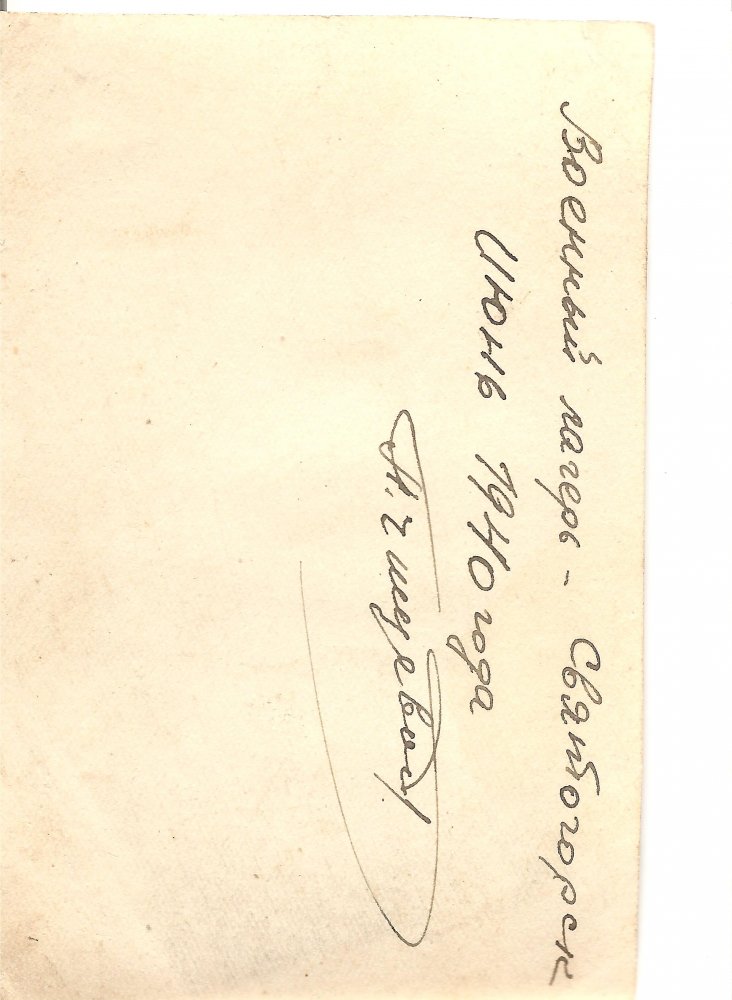 Военный лагерь - Святогорск
Июнь 1940 года